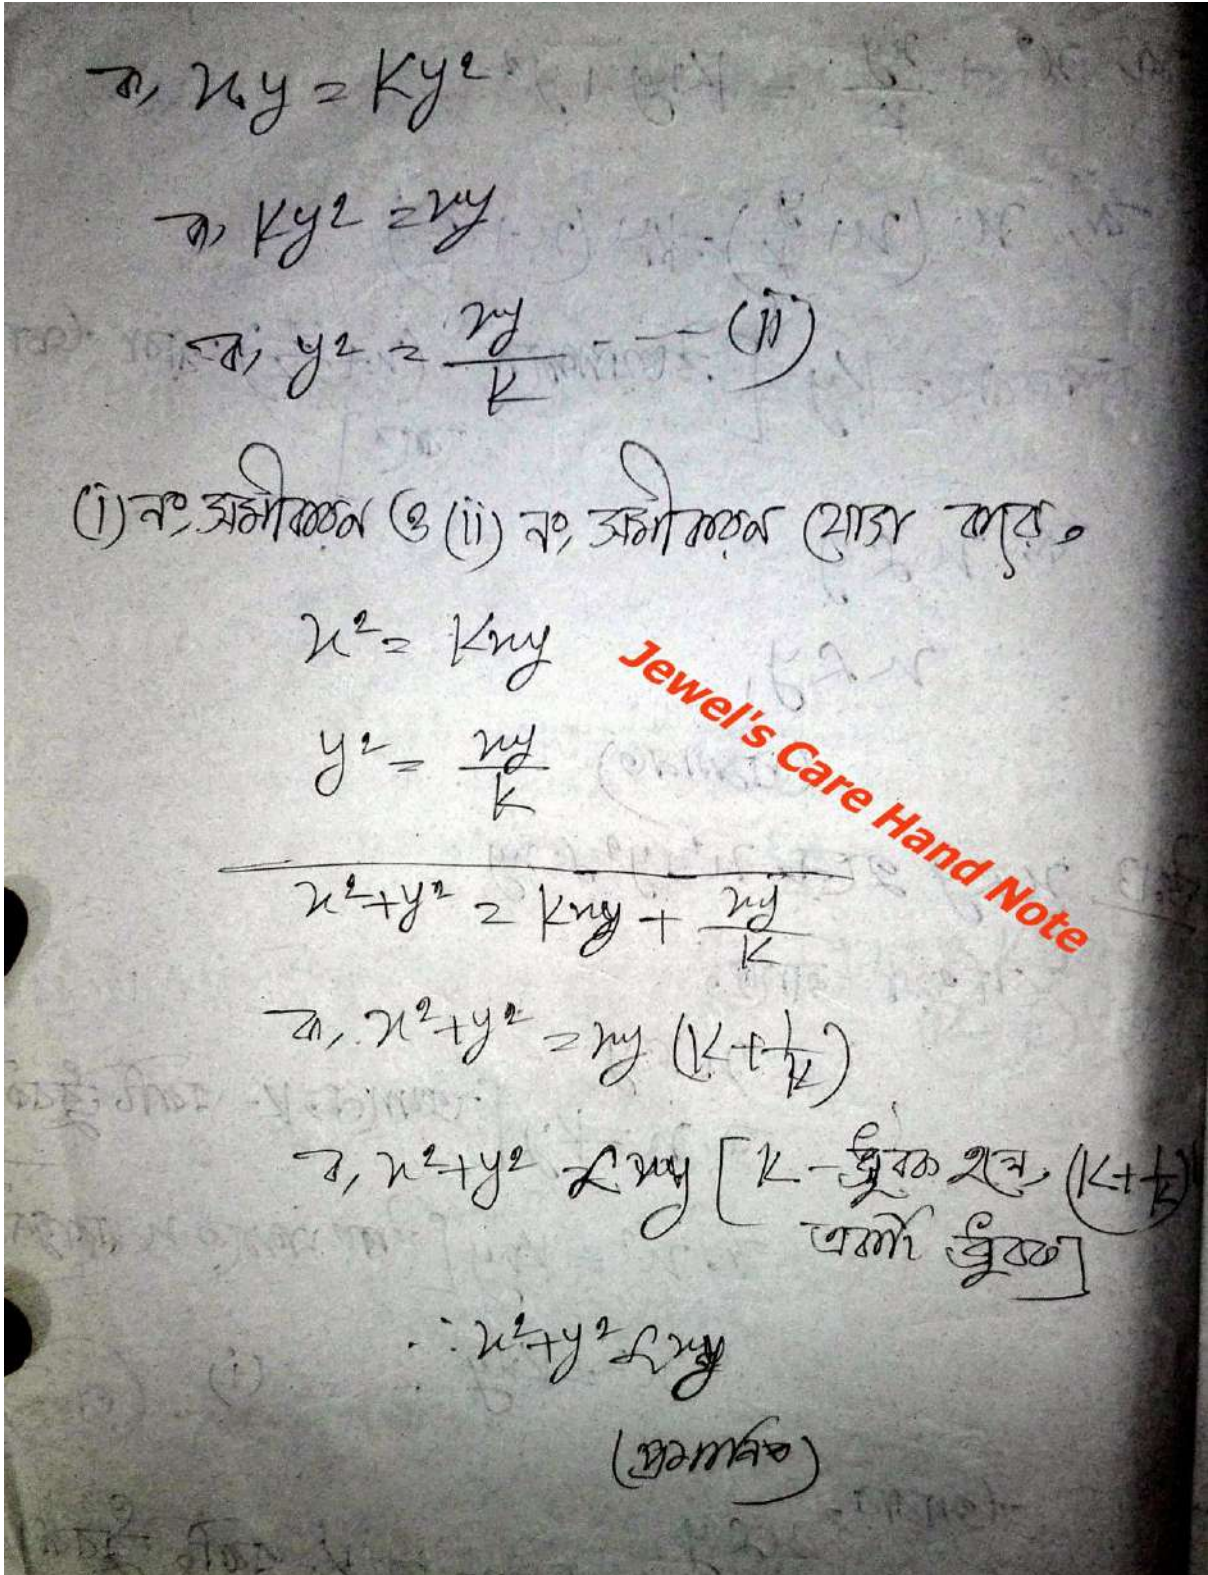 বা, xy = Ky²
বা, Ky² = xy
বা, y² = xy/K - - (ii)
(i) নং সমীকরন ও (ii) নং সমীকরন যোগ করে,
x² = Kxy
y² = xy/K
x²+y² = Kxy + xy/K
বা, x²+y² = xy (K+1/K)
বা, x²+y² ∝ xy [K - ধ্রুবক হলে, (K+1/K)
একটি ধ্রুবক]
∴ x²+y² ∝ xy
(প্রমানিত)
Jewel's Care Hand Note